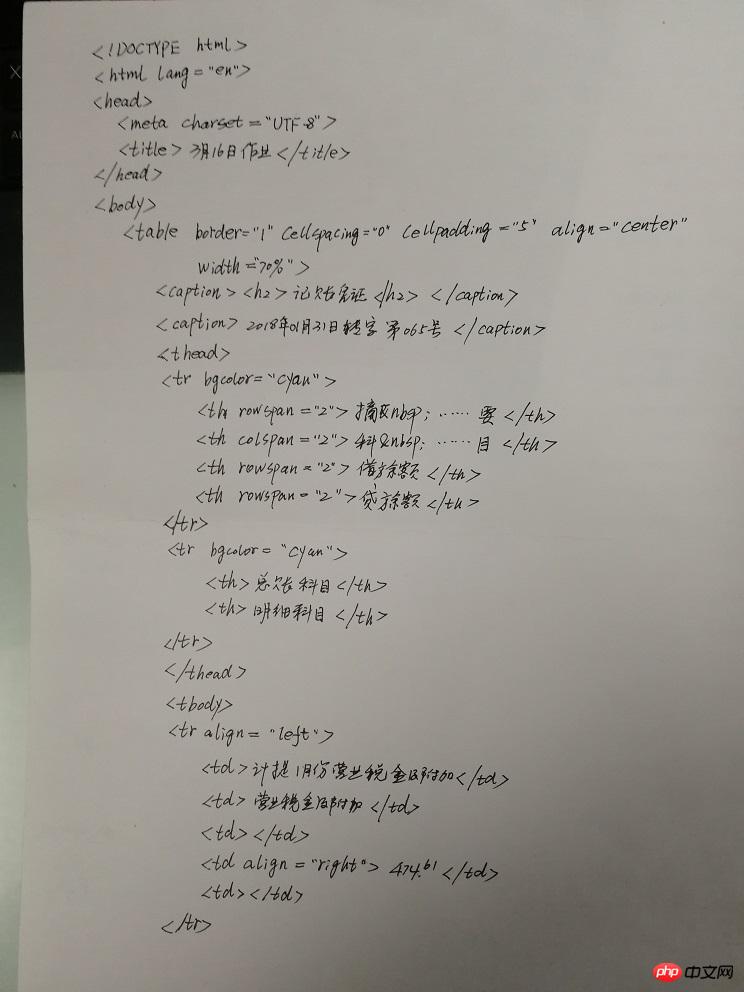 <!DOCTYPE html>
<html lang="en">
<head>
<meta charset="UTF-8">
<title>3月16日作业</title>
</head>
<body>
<table border="1" cellspacing="0" cellpadding="5" align="center"
width="70%">
<caption><h2>记账凭证</h2></caption>
<caption>2018年01月31日转字第065号</caption>
<thead>
<tr bgcolor="cyan">
<th rowspan="2">摘&nbsp;……要</th>
<th colspan="2">科&nbsp;……目</th>
<th rowspan="2">借方余额</th>
<th rowspan="2">贷方余额</th>
</tr>
<tr bgcolor="cyan">
<th>总账科目</th>
<th>明细科目</th>
</tr>
</thead>
<tbody>
<tr align="left">
<td>计提1月份营业税金及附加</td>
<td>营业税金及附加</td>
<td></td>
<td align="right">474.61</td>
<td></td>
</tr>
php中文网